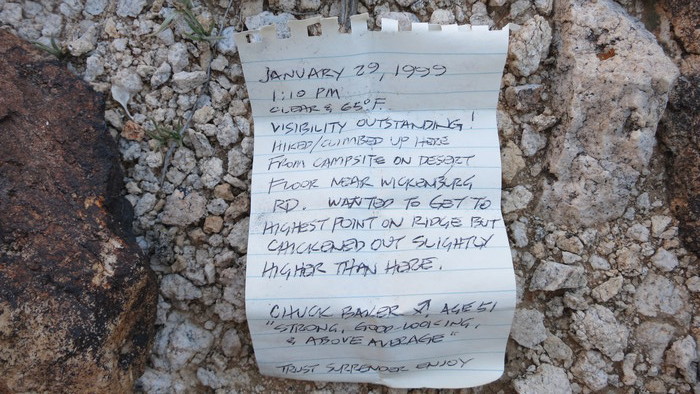 JANUARY 29, 1999
1:10 PM
CLEAR & 65°F
VISIBILITY OUTSTANDING!
HIKED/CLIMBED UP HERE
FROM CAMPSITE ON DESERT
FLOOR NEAR WICKENBURG
RD. WANTED TO GET TO
HIGHEST POINT ON RIDGE BUT
CHICKENED OUT SLIGHTLY
HIGHER THAN HERE.
CHUCK BAKER AGE 51
"STRONG, GOOD LOOKING,
& ABOVE AVERAGE"
TRUST SURRENDER ENJOY